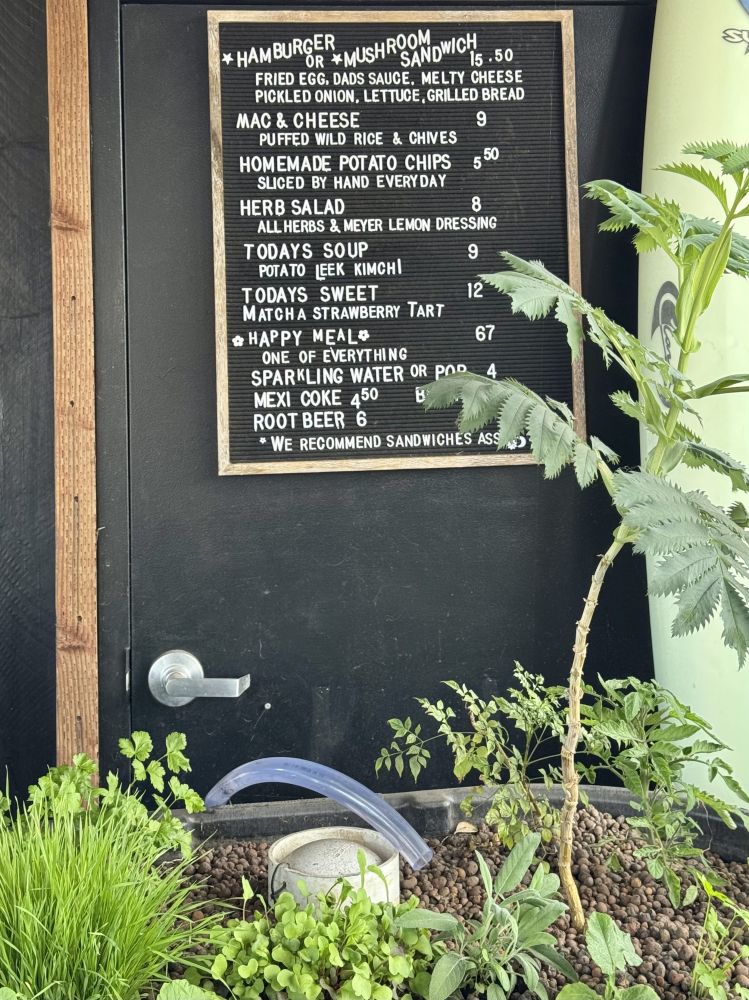 *HAMBURGER OR *MUSHROOM SANDWICH 15.50
FRIED EGG, DADS SAUCE, MELTY CHEESE
PICKLED ONION, LETTUCE, GRILLED BREAD
MAC & CHEESE 9
PUFFED WILD RICE & CHIVES
HOMEMADE POTATO CHIPS 5 50
SLICED BY HAND EVERYDAY
HERB SALAD 8
ALL HERBS & MEYER LEMON DRESSING
TODAYS SOUP 9
POTATO LEEK KIMCHI
TODAYS SWEET 12
MATCHA STRAWBERRY TART
HAPPY MEAL 67
ONE OF EVERYTHING
SPARKLING WATER OR POP 4
MEXI COKE 4 50
ROOT BEER 6
*WE RECOMMEND SANDWICHES AS